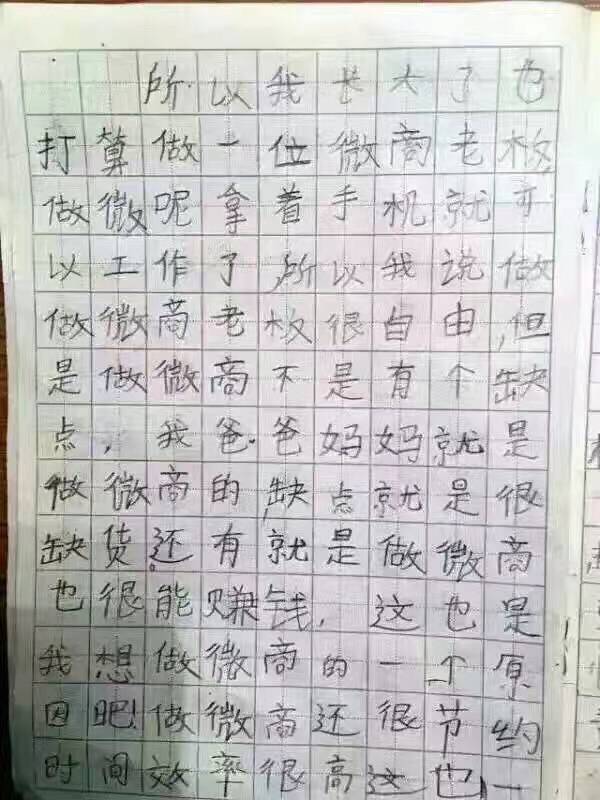 所以我长大了也
打算做一位微商老板,
做微呢拿着手机就可
以工作了,所以我说做
做微商老板很自由,但
是做微商不是有个缺
点,我爸.爸妈妈就是
做微商的,缺点就是很
缺货.还有就是做微商
也很能赚钱,这也是
我想做微商的一个原
因吧!做微商还很节约
时间效率很高这也一